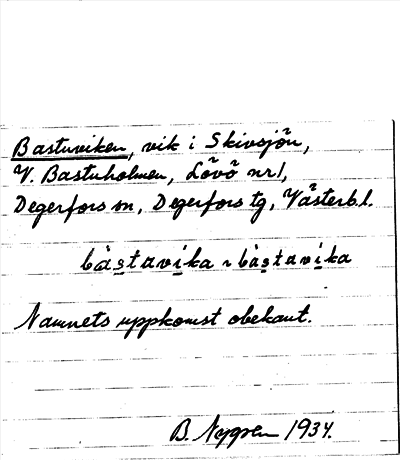 Bastuviken, vik i Skivsjön,
V. Bastuholmen, Lövö nr 1,
Degerfors sn, Degerfors tg, Västerb. l.
bàstavika ~ bàstavika
Namnets uppkomst obekant.
B. Nygren 1934.